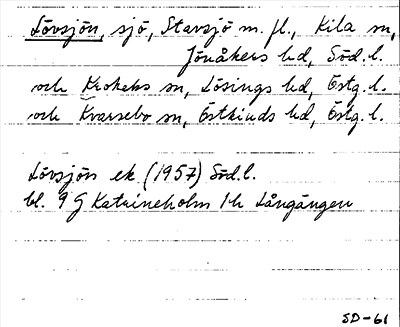 Lövsjön, sjö, Stavsjö m. fl., Kila sn,
Jönåkers hd, Söd. l.
och Krokeks sn, Lösings hd, Östg. l.
och Kvarsebo sn, Östkinds hd, Östg. l.
Lövsjön ek (1957) Söd. l.
bl. 9 G Katrineholm 1 h Långängen
SD-61